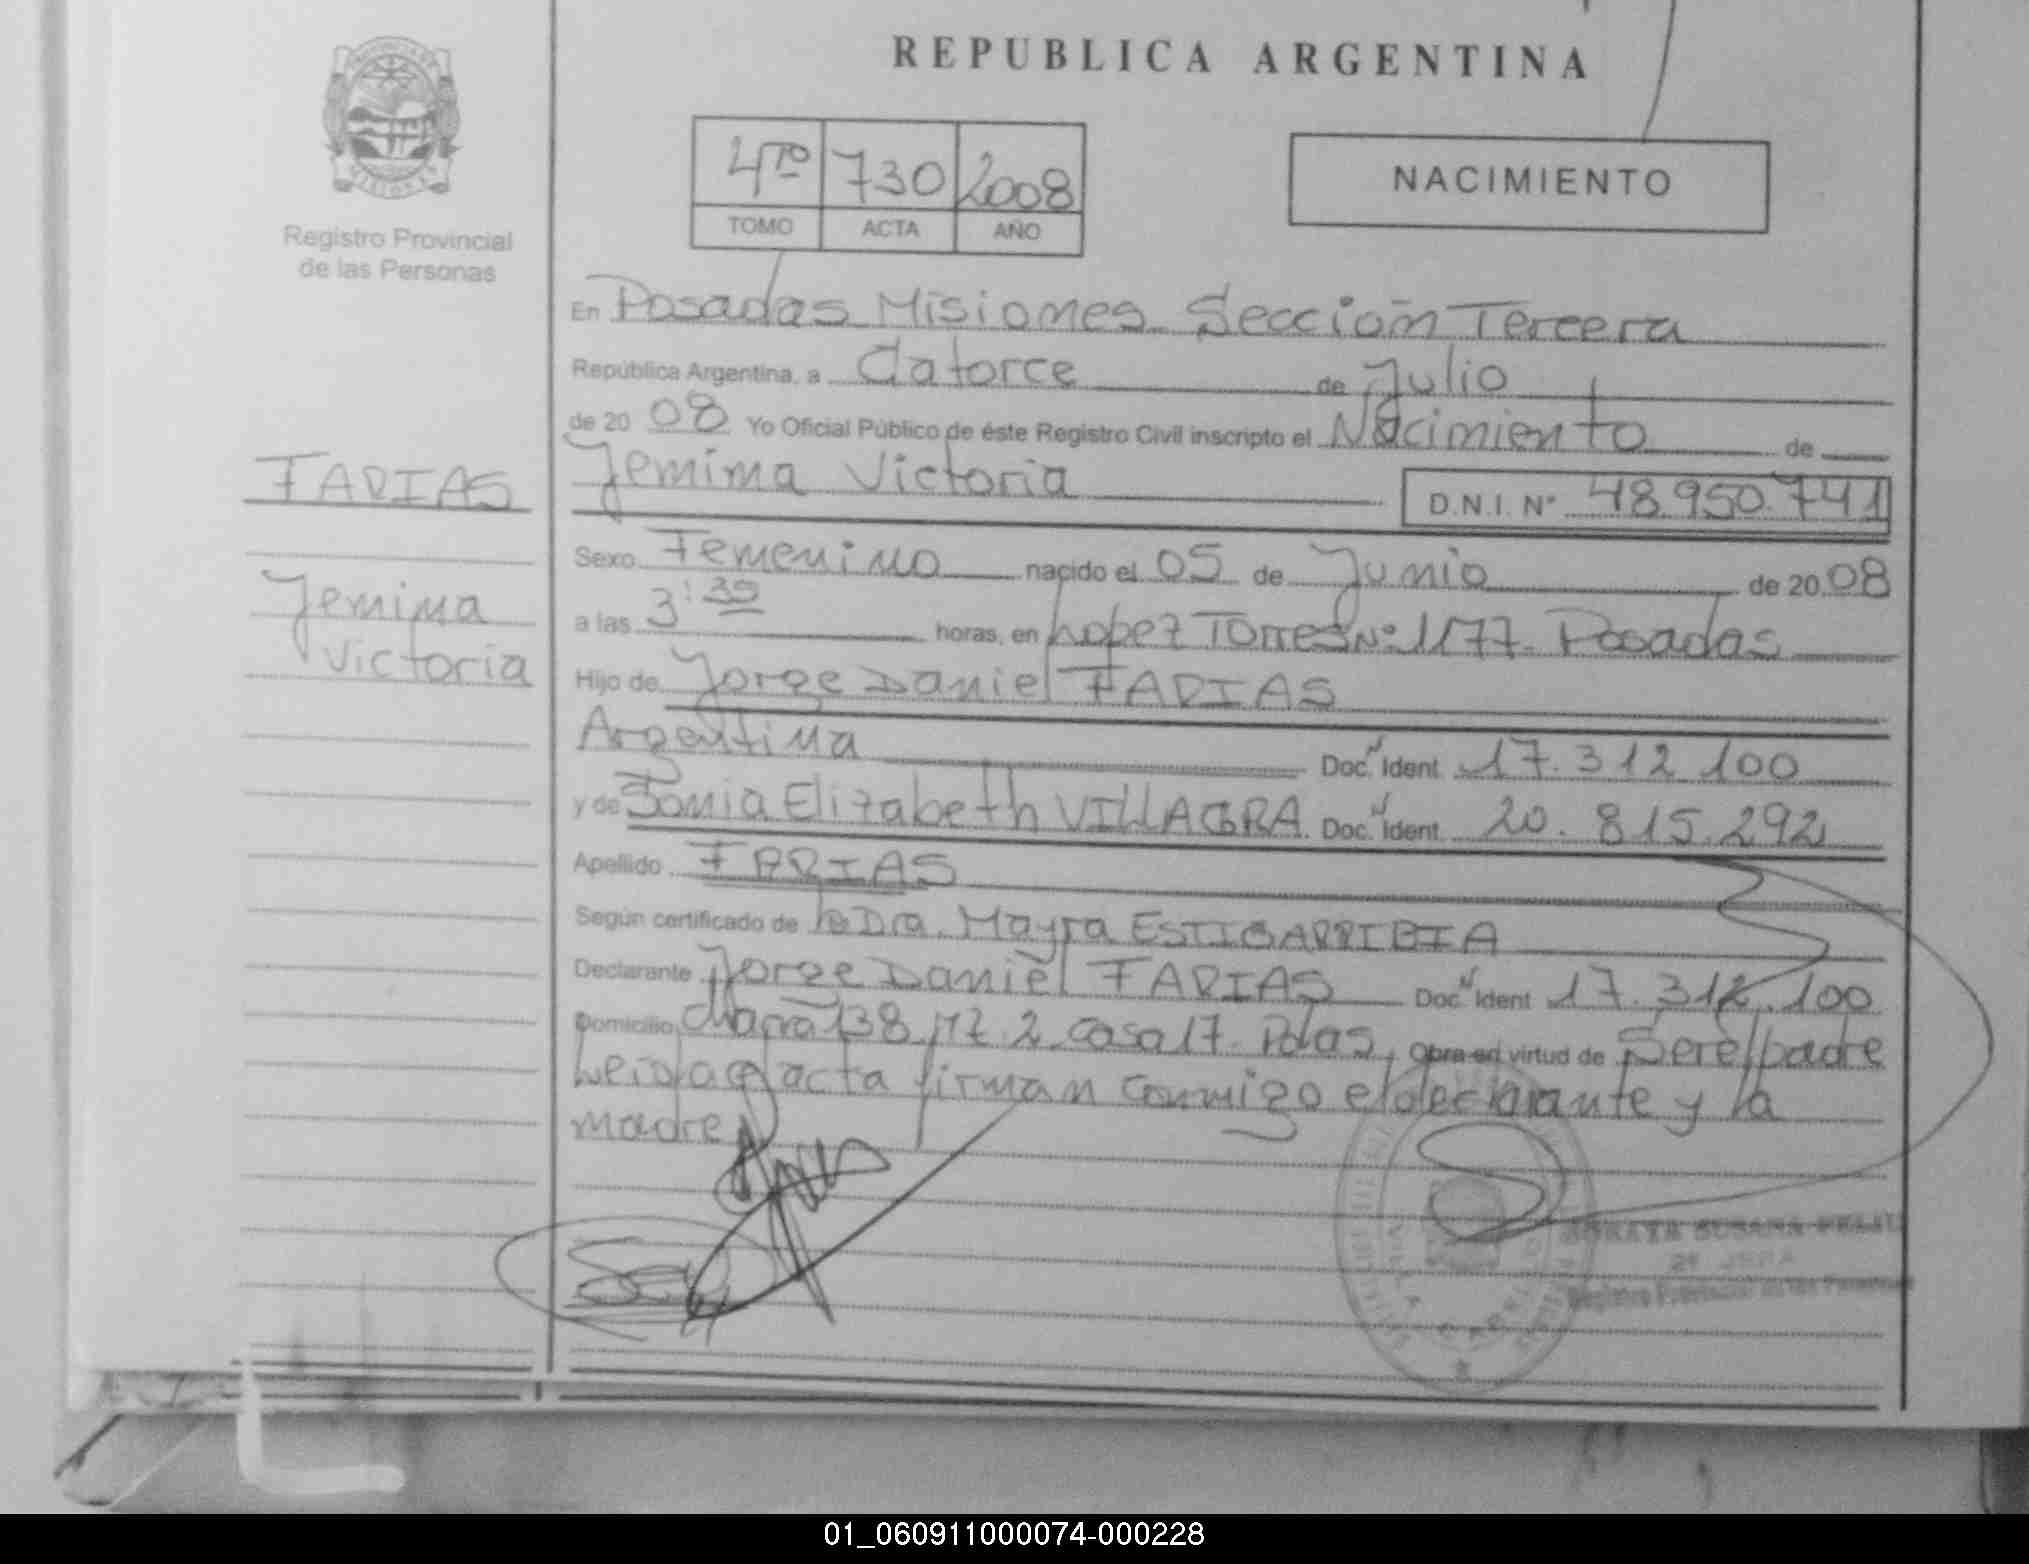 REPUBLICA ARGENTINA
PROVINCIA DE MISIONES
Registro Provincial
de las Personas
4TO 730 2008
TOMO ACTA AÑO
NACIMIENTO
En Posadas Misiones Sección Tercera
República Argentina, a Catorce de Julio
de 20 08 Yo Oficial Público de éste Registro Civil inscripto el Nacimiento de
Jemima Victoria D.N.I. Nº 48.950.741
FARIAS
Jemima
Victoria
Sexo Femenino nacido el 05 de Junio de 20 08
a las 3:30 horas, en Lopez Torres Nº 1177 Posadas
Hijo de Jorge Daniel FARIAS
Argentina Doc. Ident. 17.312.100
y de Sonia Elizabeth VILLAGRA Doc. Ident. 20.815.292
Apellido FARIAS
Según certificado de la Dra. Mayra ESTIGARRIBIA
Declarante Jorge Daniel FARIAS Doc. Ident 17.312.100
Domicilio Chacra 138 Mz 2 casa 17 Pdas, obra en virtud de Ser el padre
Leida el acta firman conmigo el declarante y la
madre
SUSANA
2º JEFA
Registro Provincial de las Personas
01_060911000074-000228